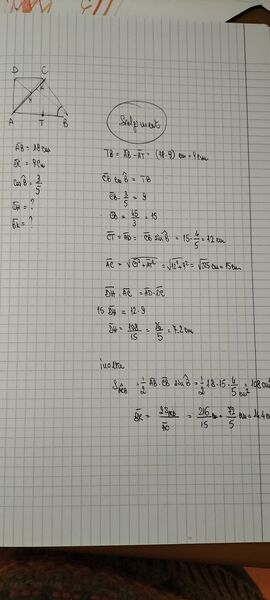 D C
H K
A T B
AB = 18 cm
DC = 9 cm
cos B̂ = 3/5
DH = ?
BK = ?
Svolgimento
TB = AB - AT = (18-9) cm = 9 cm
CB cos B̂ = TB
CB · 3/5 = 9
CB = 45/3 = 15
CT = AD = CB sin B̂ = 15 · 4/5 = 12 cm
AC = √CT² + AT² = √12² + 9² = √225 cm = 15 cm
DH · AC = AD · DC
15 DH = 12 · 9
DH = 108/15 = 36/5 = 7.2 cm
inoltre
S ACB = 1/2 AB CB sin B̂ = 1/2 18 · 15 · 4/5 = 108 cm²
BK = 2S ACB = 216/15 cm = 72/5 cm = 14.4 cm